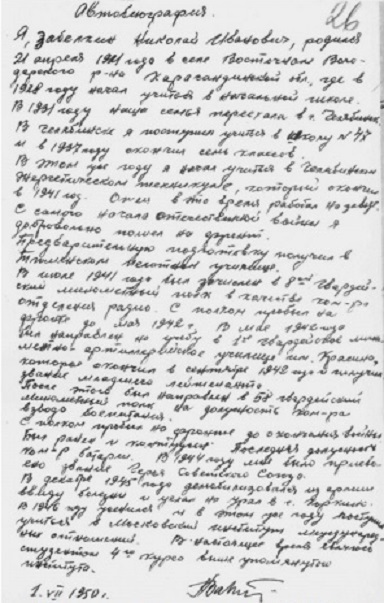 26
Автобиография.
Я, Забелкин Николай Иванович, родился
21 апреля 1921 года в селе Восточном
р-на Карагандинской обл, где в
1928 году начал учиться в начальной школе.
В 1931 году наша семья переехала в г. Челябинск
В Челябинске я поступил учиться в школу N
и в 1937 году окончил семь классов.
В этом же году я начал учиться в Челябинском
Энергетическом техникуме, который окончил
в 1941 год. Отец в это время работал на
С самого начала отечественной войны я
добровольно пошел на фронт.
Предварительную подготовку получил в
Тюменском пехотном училище.
В июле 1941 года был зачислен в 8ой гвардей-
ский минометный полк в качестве ком-ра
отделения радио. С полком пробыл на
фронте до мая 1942 г. В мае 1942 года
был направлен на учебу в 1ое гвардейское мино-
метно артиллерийское училище им. Красина,
которое окончил в сентябре 1942 года и получил
звание младшего лейтенанта.
После этого был направлен в гвардейский
минометный полк на должность ком-ра
взвода
С полком пробыл на фронте до окончания войны
Был ранен и контужен. Последняя должность
ком-р батареи. В 1944 году мне было присво-
ено звание Героя Советского Союза.
В декабре 1945 года демобилизовался из армии
ввиду болезни и уехал на Урал в г. Коркино.
В 1946 году женился и в этом же году поступил
учиться в Московский институт международ-
ных отношений. В настоящее время являюсь
студентом 4го курса выше упомянутого
института.
1. VII 1950 г.